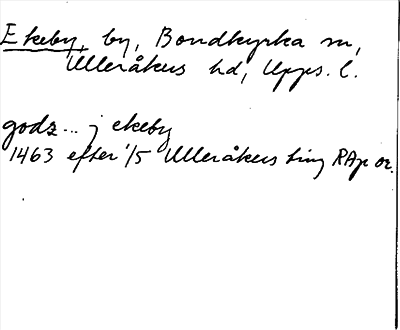 Ekeby, by, Bondkyrka sn,
Ulleråkers hd, Upps. l.
godz... j ekeby
1463 efter 1/5 Ulleråkers ting RAp or.